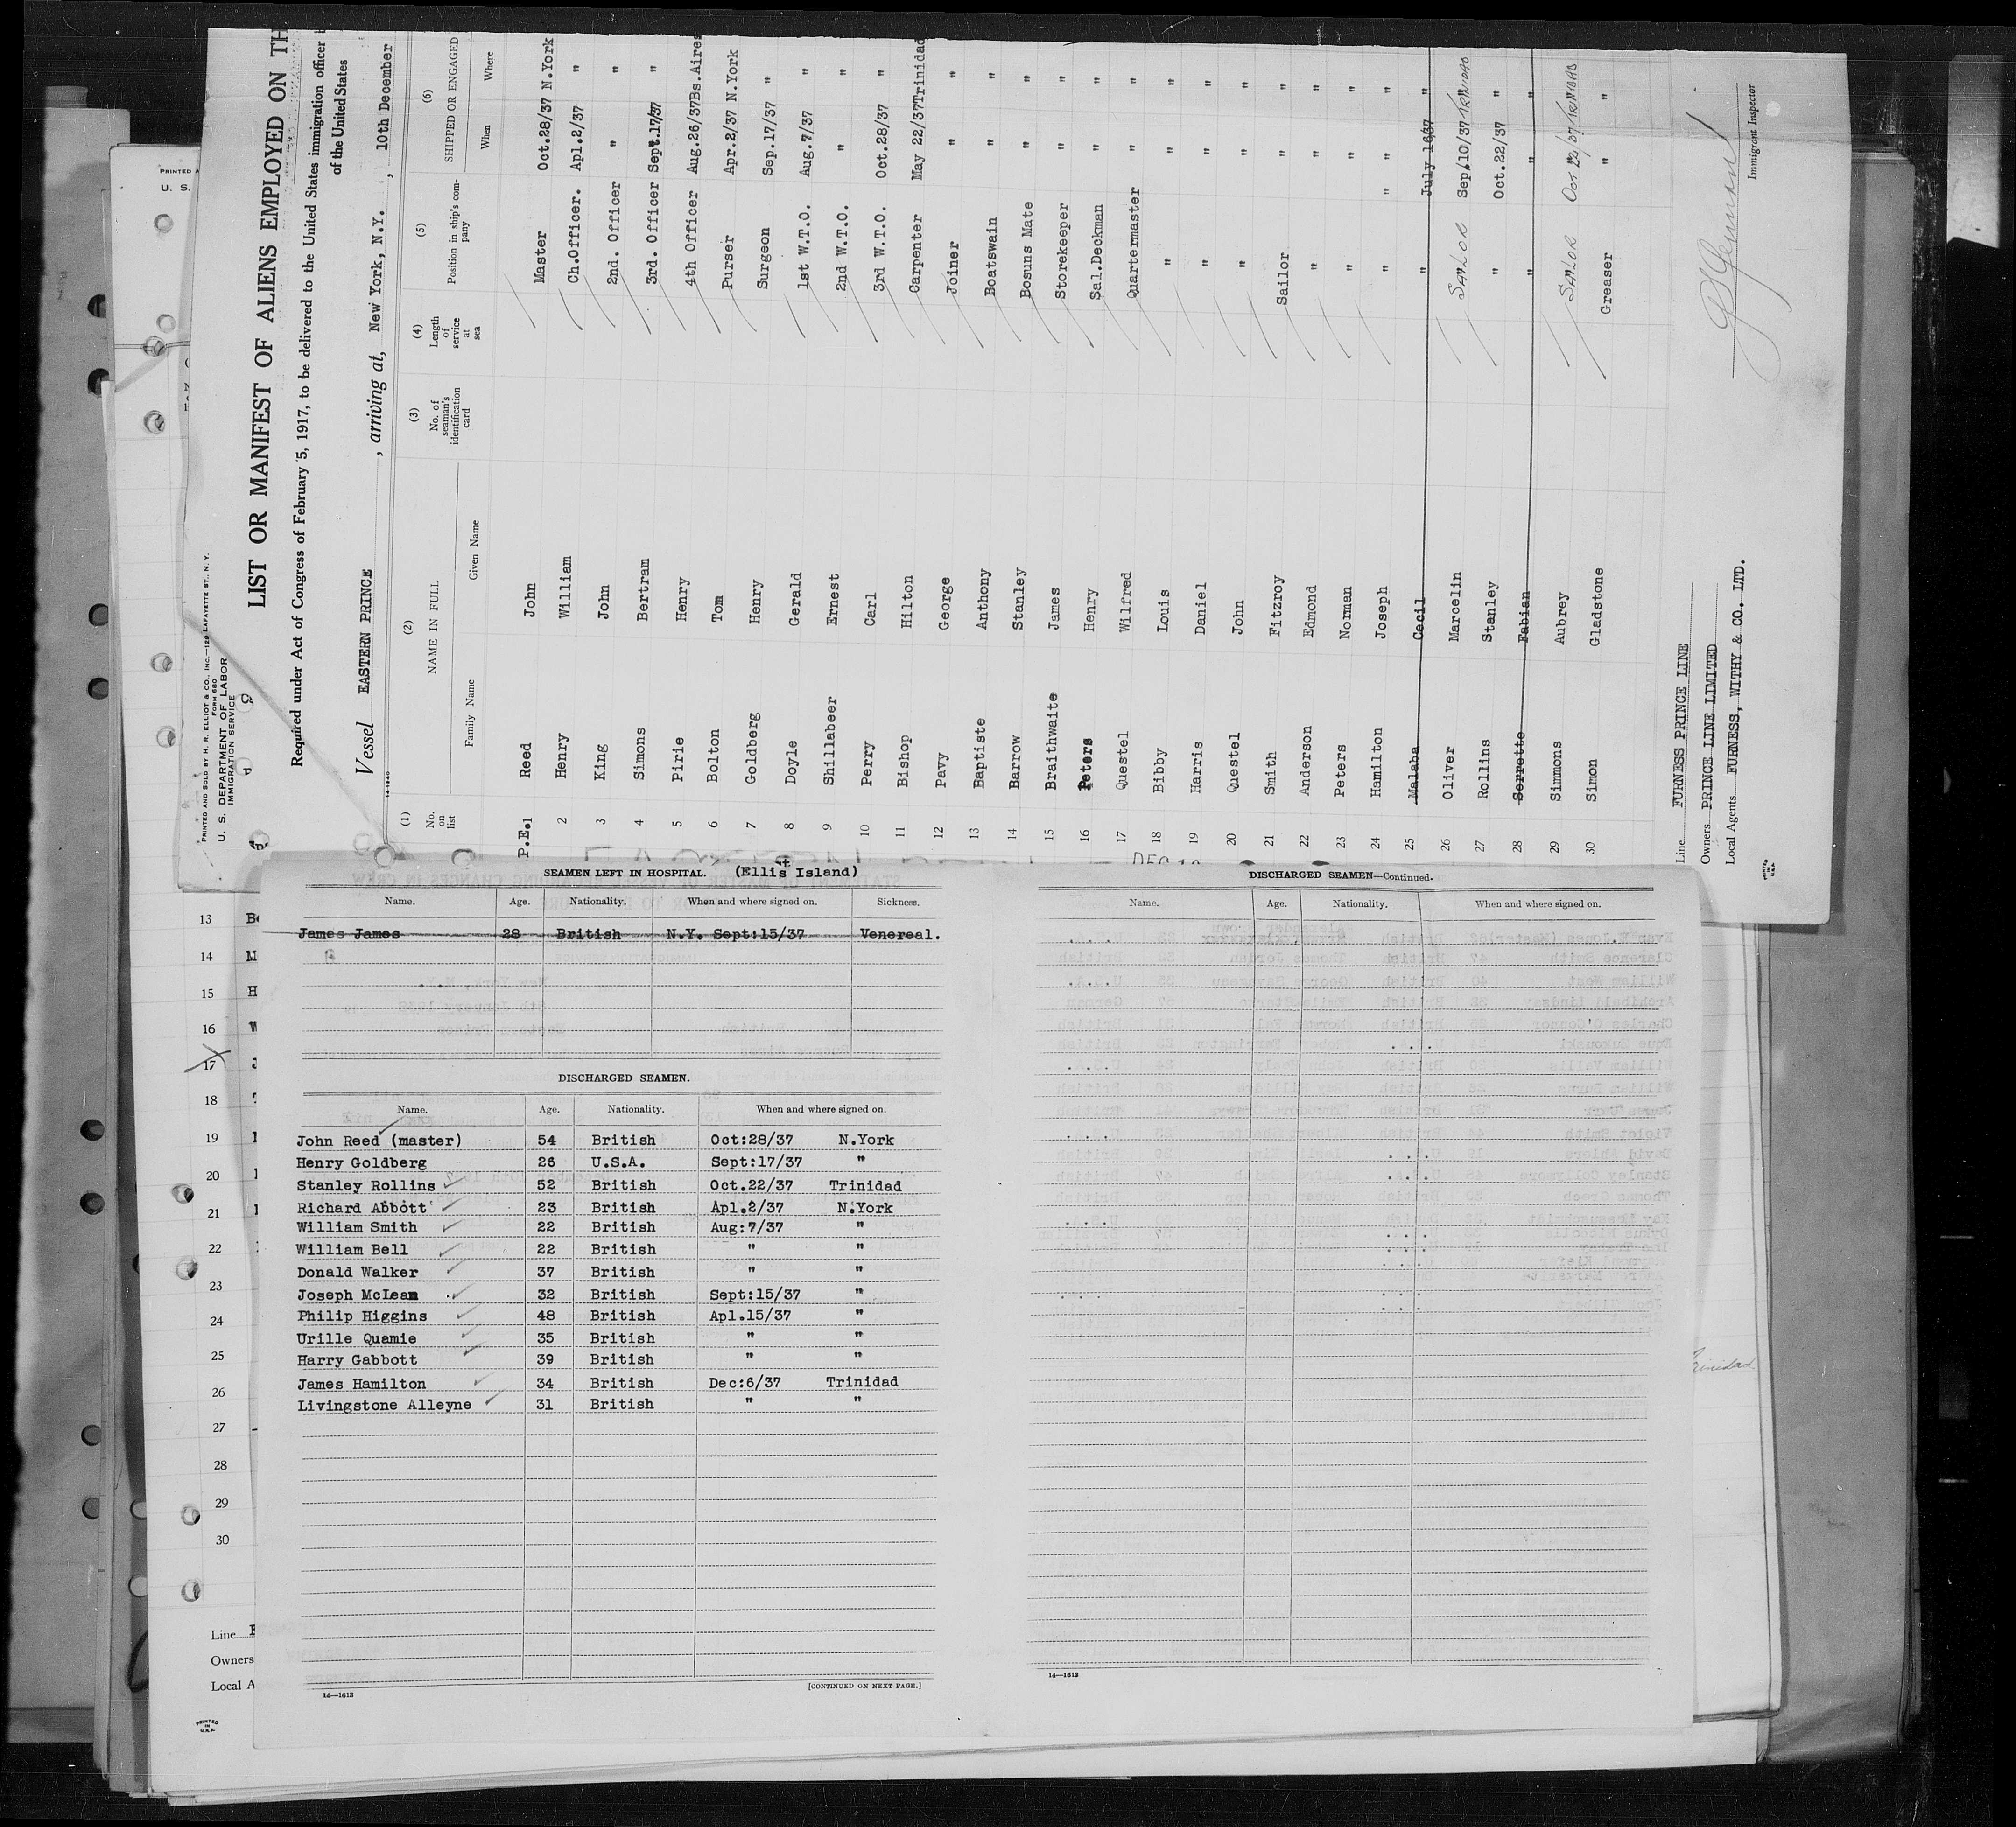 PRINTED AND SOLD BY H. R. ELLIOT & CO., INC.—120 LAFAYETTE ST., N. Y.
FORM 680
U. S. DEPARTMENT OF LABOR
IMMIGRATION SERVICE
LIST OR MANIFEST OF ALIENS EMPLOYED ON TH
Required under Act of Congress of February 5, 1917, to be delivered to the United States immigration officer
of the United States
Vessel EASTERN PRINCE, arriving at, New York, N.Y. , 10th December
(1) (2) (3) (4) (5) (6)
No. on list NAME IN FULL No. of seaman's identification card Length of service at sea Position in ship's company SHIPPED OR ENGAGED
Family Name Given Name When Where
P.E.1 Reed John Master Oct.28/37 N.York
2 Henry William Ch.Officer. Apl.2/37 "
3 King John 2nd. Officer " "
4 Simons Bertram 3rd. Officer Sept.17/37 "
5 Pirie Henry 4th Officer Aug.26/37 Bs.Aires
6 Bolton Tom Purser Apr.2/37 N.York
7 Goldberg Henry Surgeon Sep.17/37 "
8 Doyle Gerald 1st W.T.O. Aug.7/37 "
9 Shillabeer Ernest 2nd W.T.O. " "
10 Perry Carl 3rd W.T.O. Oct.28/37 "
11 Bishop Hilton Carpenter May 22/37 Trinidad
12 Pavy George Joiner " "
13 Baptiste Anthony Boatswain " "
14 Barrow Stanley Bosuns Mate " "
15 Braithwaite James Storekeeper " "
16 Peters Henry Sal.Deckman " "
17 Questel Wilfred Quartermaster " "
18 Bibby Louis " " "
19 Harris Daniel " " "
20 Questel John " " "
21 Smith Fitzroy Sailor " "
22 Anderson Edmond " " "
23 Peters Norman " " "
24 Hamilton Joseph " " " "
25 Malaba Cecil " July 16/37 "
26 Oliver Marcelin SAILOR Sep/10/37 TRINIDAD
27 Rollins Stanley " Oct.22/37 "
28 Serrette Fabian " " "
29 Simmons Aubrey SAILOR Oct 22/37 TRINIDAD
30 Simon Gladstone Greaser " "
Line FURNESS PRINCE LINE
Owners PRINCE LINE LIMITED
Local Agents FURNESS, WITHY & CO. LTD.
Immigrant Inspector
PRINTED IN U.S.A.
PRINTED A
U. S.
13 Be
14 M
15 H
16 W
17
18
19
20
21
22
23
24
25
26
27
28
29
30
Line
Owners
Local A
PRINTED IN U.S.A.
Trinidad
SEAMEN LEFT IN HOSPITAL. (Ellis Island)
Name. Age. Nationality. When and where signed on. Sickness.
James James 28 British N.Y. Sept:15/37 Venereal.
DISCHARGED SEAMEN.
Name. Age. Nationality. When and where signed on.
John Reed (master) 54 British Oct:28/37 N.York
Henry Goldberg 26 U.S.A. Sept:17/37 "
Stanley Rollins 52 British Oct.22/37 Trinidad
Richard Abbott 23 British Apl.2/37 N.York
William Smith 22 British Aug:7/37 "
William Bell 22 British " "
Donald Walker 37 British " "
Joseph McLean 32 British Sept:15/37 "
Philip Higgins 48 British Apl.15/37 "
Urille Quamie 35 British " "
Harry Gabbott 39 British " "
James Hamilton 34 British Dec:6/37 Trinidad
Livingstone Alleyne 31 British " "
14—1613
[CONTINUED ON NEXT PAGE.]
DISCHARGED SEAMEN—Continued.
Name. Age. Nationality. When and where signed on.
14—1613